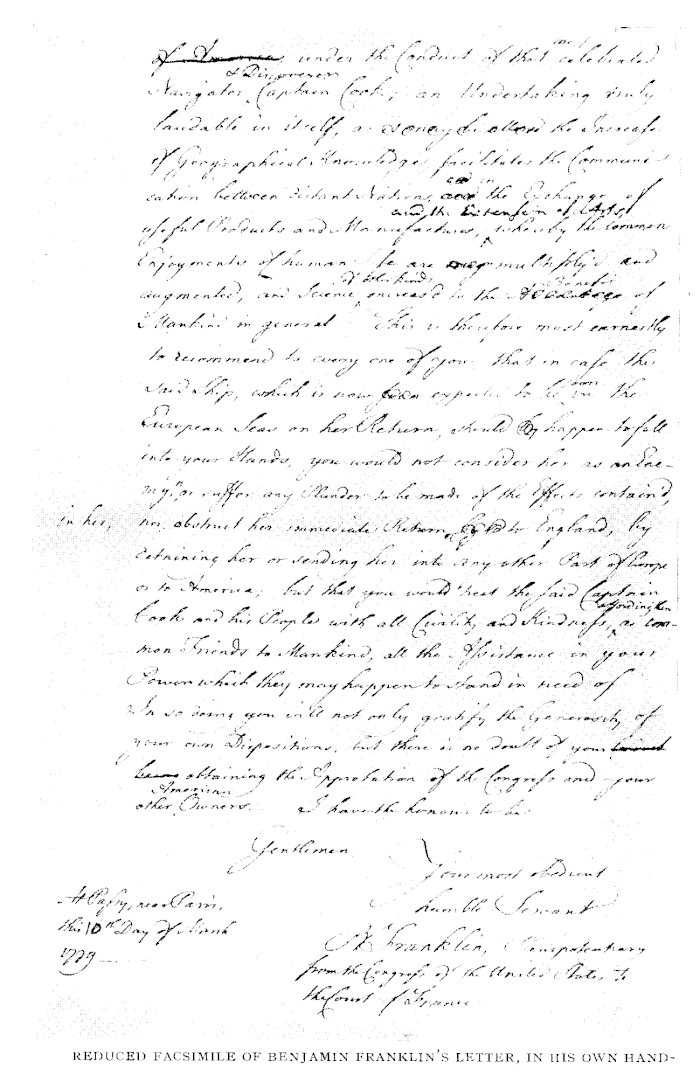 of America, under the Conduct of that most celebrated
& Discoverer
Navigator Captain Cook; an Undertaking truly
laudable in itself, as the Increase
of Geographical Knowledge facilitates the Communi-
cation between distant Nations, in the Exchange of
and the Extension of Arts,
useful Products and Manufactures, whereby the common
Enjoyments of human Life are multiply'd and
of other kinds Benefit
augmented, and Science increas'd to the of
Mankind in general This is therefore most earnestly
to recommend to every one of you that in case the
said Ship, which is now expected to be soon in the
European Seas on her Return, should happen to fall
into your Hands, you would not consider her as an Ene-
my, nor suffer any Plunder to be made of the Effects contain'd
in her, nor obstruct her immediate Return to England, by
detaining her or sending her into any other Part of Europe
or to America; but that you would treat the said Captain
affording them
Cook and his People with all Civility and Kindness, as com-
mon Friends to Mankind, all the Assistance in your
Power which they may happen to stand in need of
In so doing you will not only gratify the Generosity of
your own Dispositions, but there is no doubt of your
obtaining the Approbation of the Congress and your
American
other Owners. I have the honour to be
Gentlemen
Your most obedient
humble Servant
At Passy, near Paris,
this 10th Day of March
1779
B Franklin, Plenipotentiary
from the Congress of the United States to
the Court of France
REDUCED FACSIMILE OF BENJAMIN FRANKLIN'S LETTER, IN HIS OWN HAND-